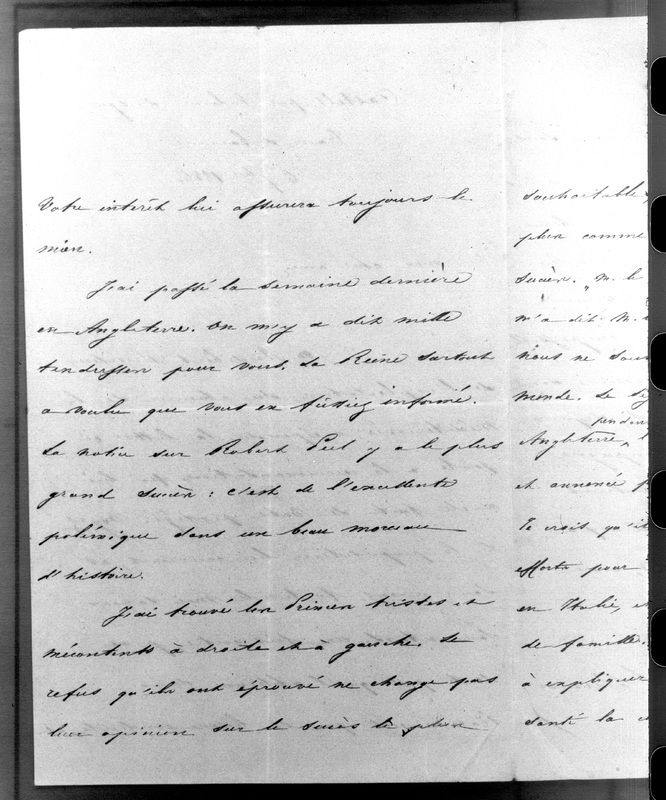 Votre intérêt lui assurera toujours le
mien.
J'ai passé la semaine dernière
en Angleterre. On m'y a dit mille
tendresses pour vous. La Reine surtout
a voulu que vous en fussiez informé.
La notice sur Robert Peel y a le plus
grand succès : c'est de l'excellente
polémique dans un beau morceau
d'histoire.
J'ai trouvé les Princes tristes et
mécontents à droite et à gauche. Le
refus qu'ils ont éprouvé ne change pas
leur opinion sur le succès le plus
souhaitable,
plus comme
succès. "M. le
m'a dit: M.
nous ne
monde. Le
pendant
Angleterre,
et annoncé
Je crois qu'il
efforts pour
en Italie, et
de famille.
à expliquer
santé la